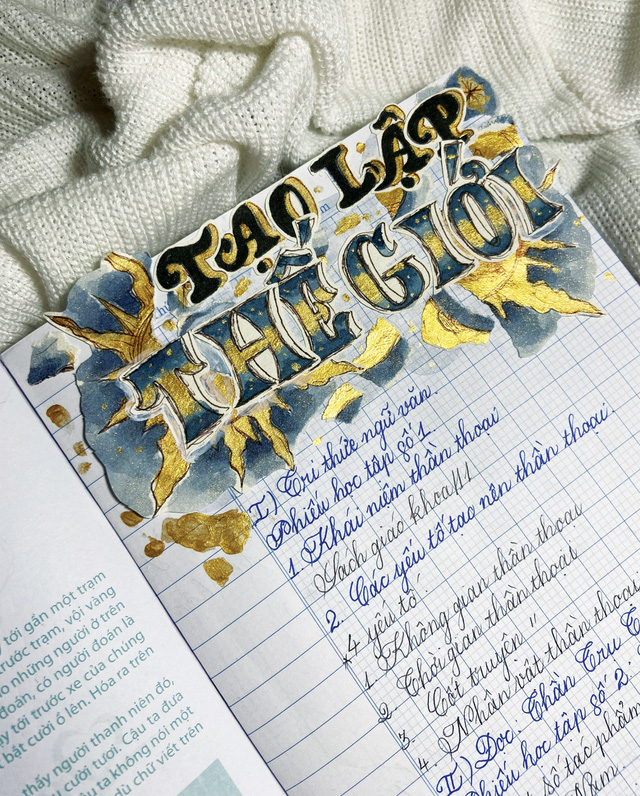 TẠO LẬP
THẾ GIỚI
I) Tri thức ngữ văn.
Phiếu học tập số 1.
1. Khái niệm thần thoại
Sách giáo khoa/11
2. Các yếu tố tạo nên thần thoại.
*4 yếu tố.
1 Không gian thần thoại
2 Thời gian thần thoại
3. Cốt truyện "
4. Nhân vật thần thoại
II) Đọc: Thần Trụ
Phiếu học tập số 2.
số tác phẩm
tới gần một trạm
trước trạm, vội vàng
những người ở trên
đoán, có người đoán là
tới trước xe của chúng
bắt cười ồ lên. Hóa ra trên
thấy người thanh niên đó,
cười tươi. Cậu ta đưa
ta không nói một
dù chữ viết trên